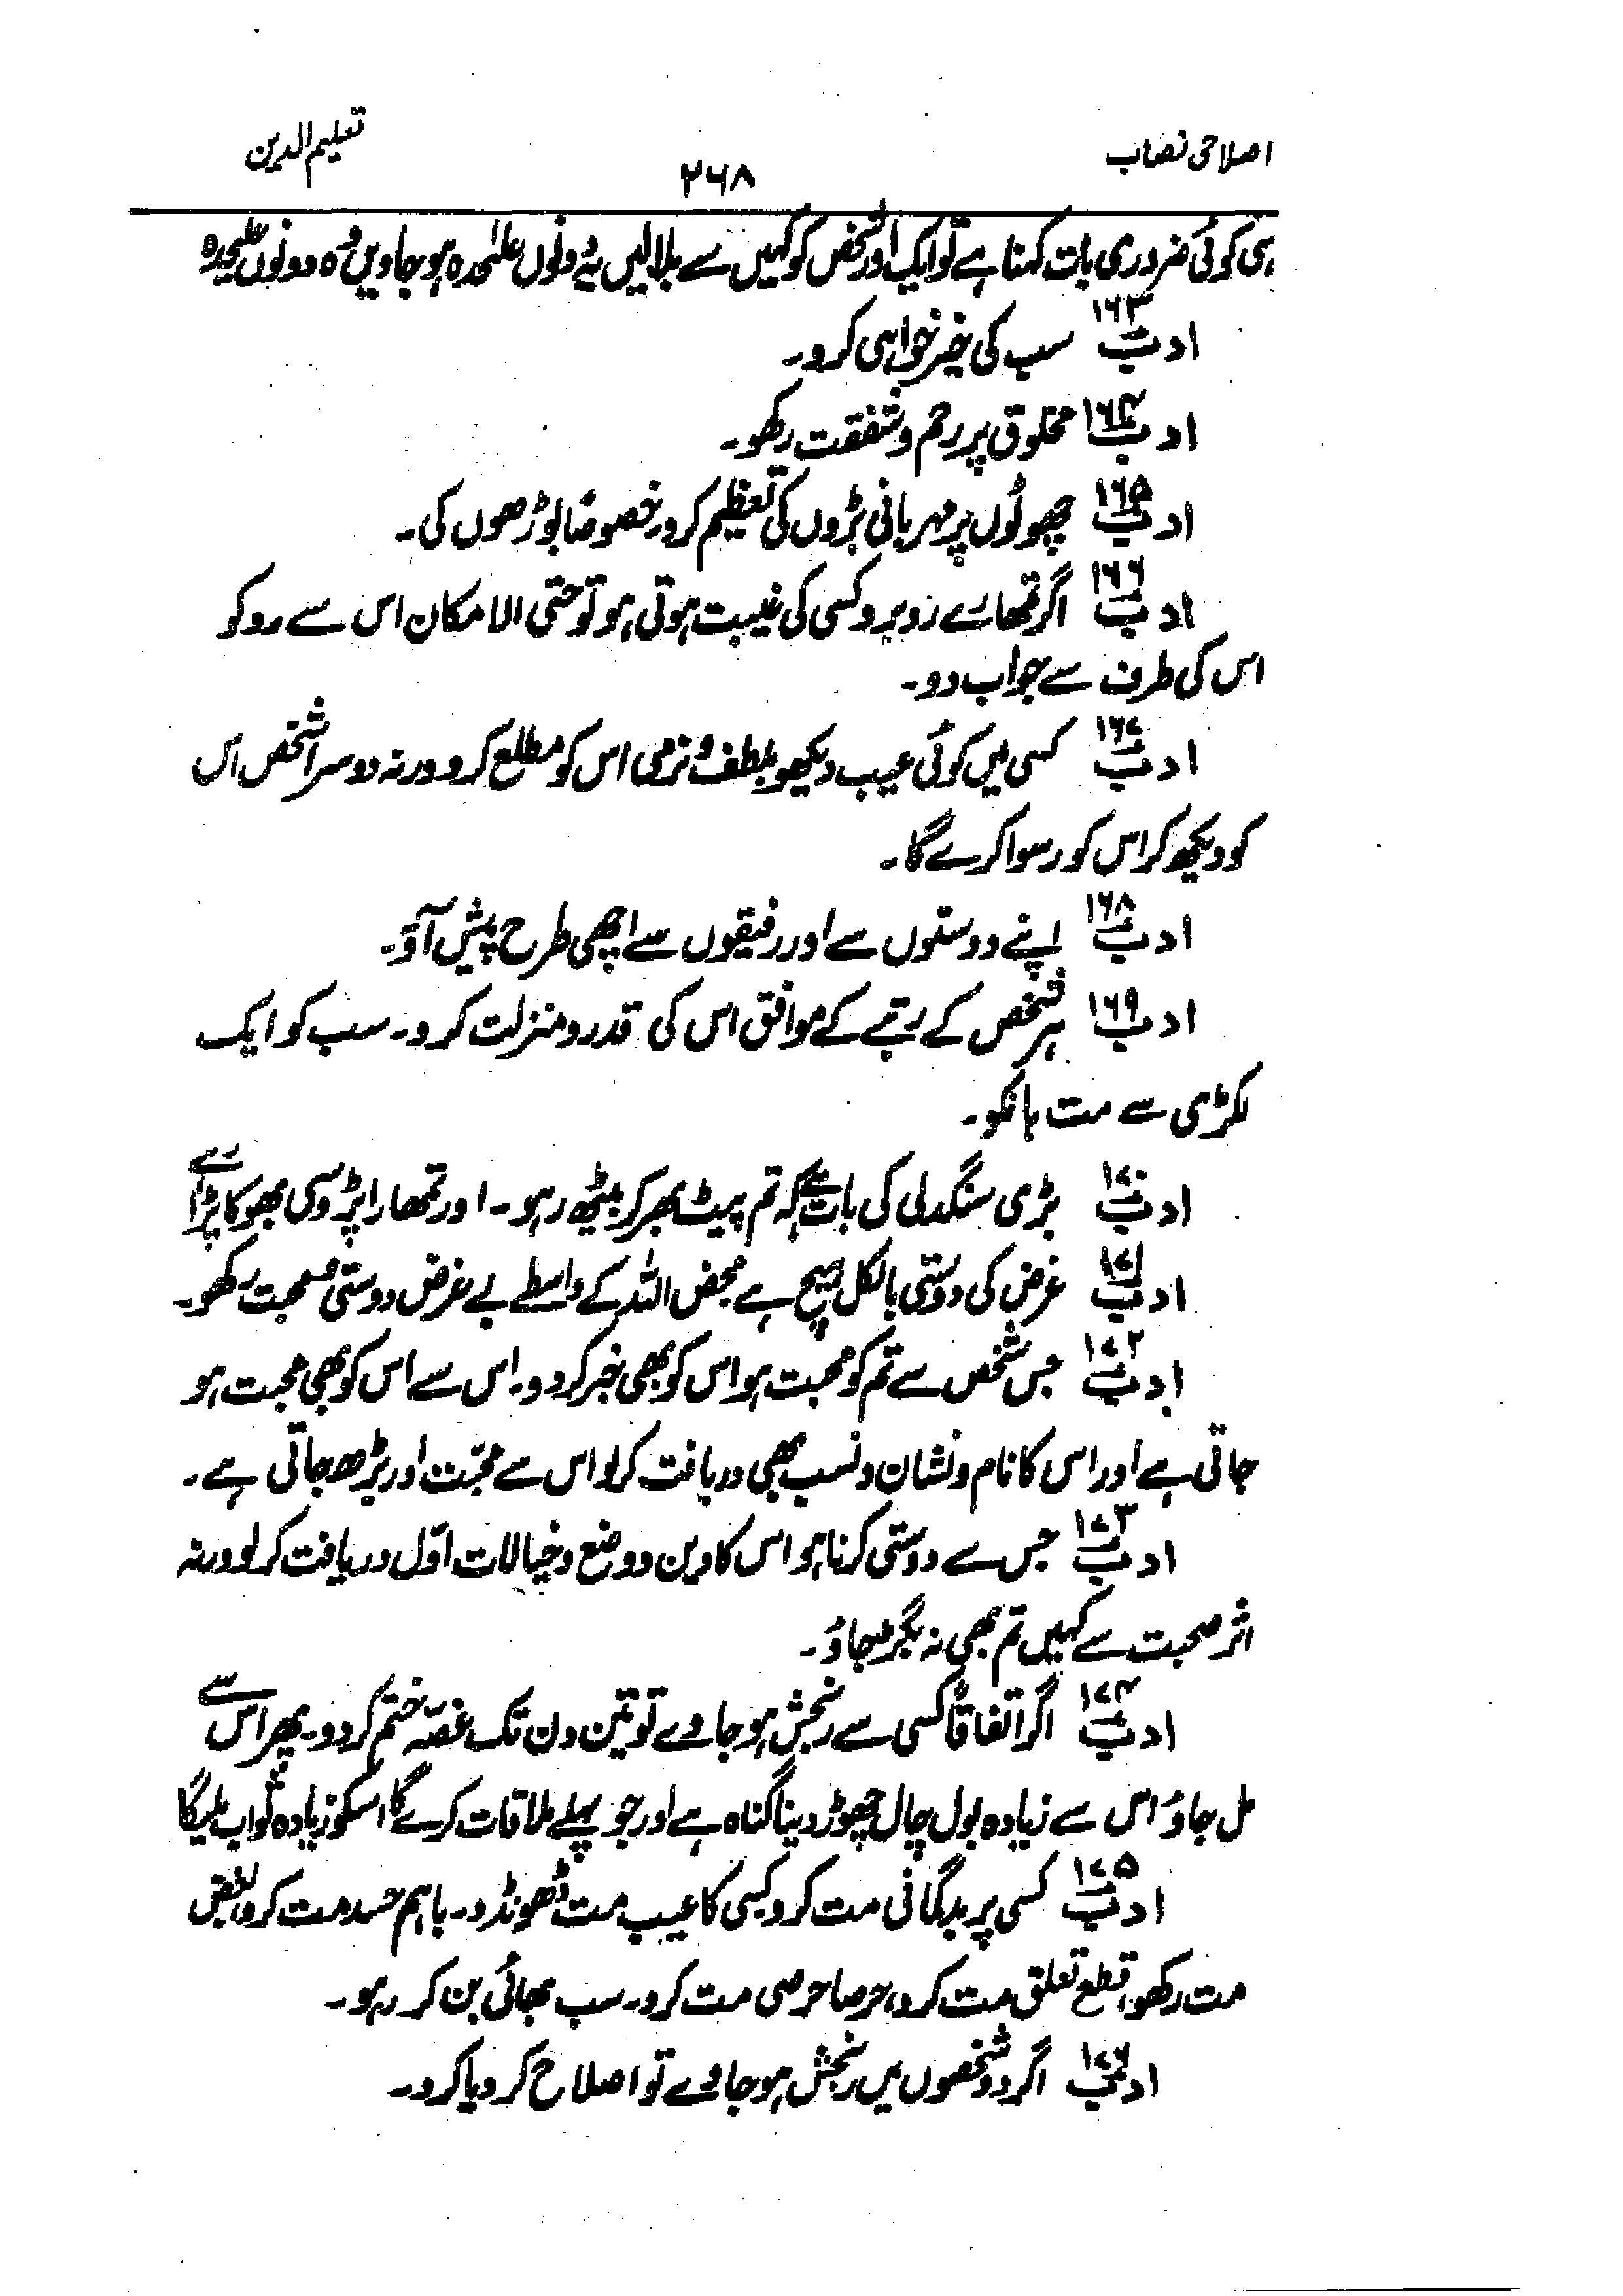 اصلاحی نصاب
۲۶۸
تعلیم الدین
ہی کوئی ضروری بات کہنا ہے تو ایک اور شخص کو کہیں سے بلالیں یہ دونوں علٰحدہ ہو جاویں وہ دونوں علیحدہ
ادب ۱۶۳ سب کی خیر خواہی کرو۔
ادب ۱۶۴ مخلوق پر رحم و شفقت رکھو۔
ادب ۱۶۵ چھوٹوں پر مہربانی بڑوں کی تعظیم کرو خصوصًا بوڑھوں کی۔
ادب ۱۶۶ اگر تمھارے روبرو کسی کی غیبت ہوتی ہو تو حتی الامکان اس سے روکو
اس کی طرف سے جواب دو۔
ادب ۱۶۷ کسی میں کوئی عیب دیکھو بلطف و نرمی اس کو مطلع کرو ورنہ دوسرا شخص اس
کو دیکھ کر اس کو رسوا کرے گا۔
ادب ۱۶۸ اپنے دوستوں سے اور رفیقوں سے اچھی طرح پیش آؤ۔
ادب ۱۶۹ ہر شخص کے رتبے کے موافق اس کی قدر و منزلت کرو۔ سب کو ایک
لکڑی سے مت ہانکو۔
ادب ۱۷۰ بڑی سنگدلی کی بات ہے کہ تم پیٹ بھر کر بیٹھ رہو۔ اور تمھارا پڑوسی بھوکا پڑا رہے
ادب ۱۷۱ غرض کی دوستی بالکل ہیچ ہے محض اللہ کے واسطے بے غرض دوستی و محبت رکھو۔
ادب ۱۷۲ جس شخص سے تم کو محبت ہو اس کو بھی خبر کر دو۔ اس سے اس کو بھی محبت ہو
جاتی ہے اور اس کا نام و نشان و نسب بھی دریافت کرلو اس سے محبّت اور بڑھ جاتی ہے۔
ادب ۱۷۳ جس سے دوستی کرنا ہو اس کا دین و وضع و خیالات اوّل دریافت کرلو ورنہ
اثر صحبت سے کہیں تم بھی نہ بگڑ جاؤ۔
ادب ۱۷۴ اگر اتفاقًا کسی سے رنجش ہو جاوے تو تین دن تک غصّہ ختم کر دو۔ پھر اس سے
مل جاؤ اس سے زیادہ بول چال چھوڑ دینا گناہ ہے اور جو پہلے ملاقات کرے گا اسکو زیادہ ثواب ملیگا
ادب ۱۷۵ کسی پر بدگمانی مت کرو کسی کا عیب مت ڈھونڈو۔ باہم حسد مت کرو بغض
مت رکھو، قطع تعلق مت کرو، حرصا حرصی مت کرو۔ سب بھائی بن کر رہو۔
ادب ۱۷۶ اگر دو شخصوں میں رنجش ہو جاوے تو اصلاح کر دیا کرو۔